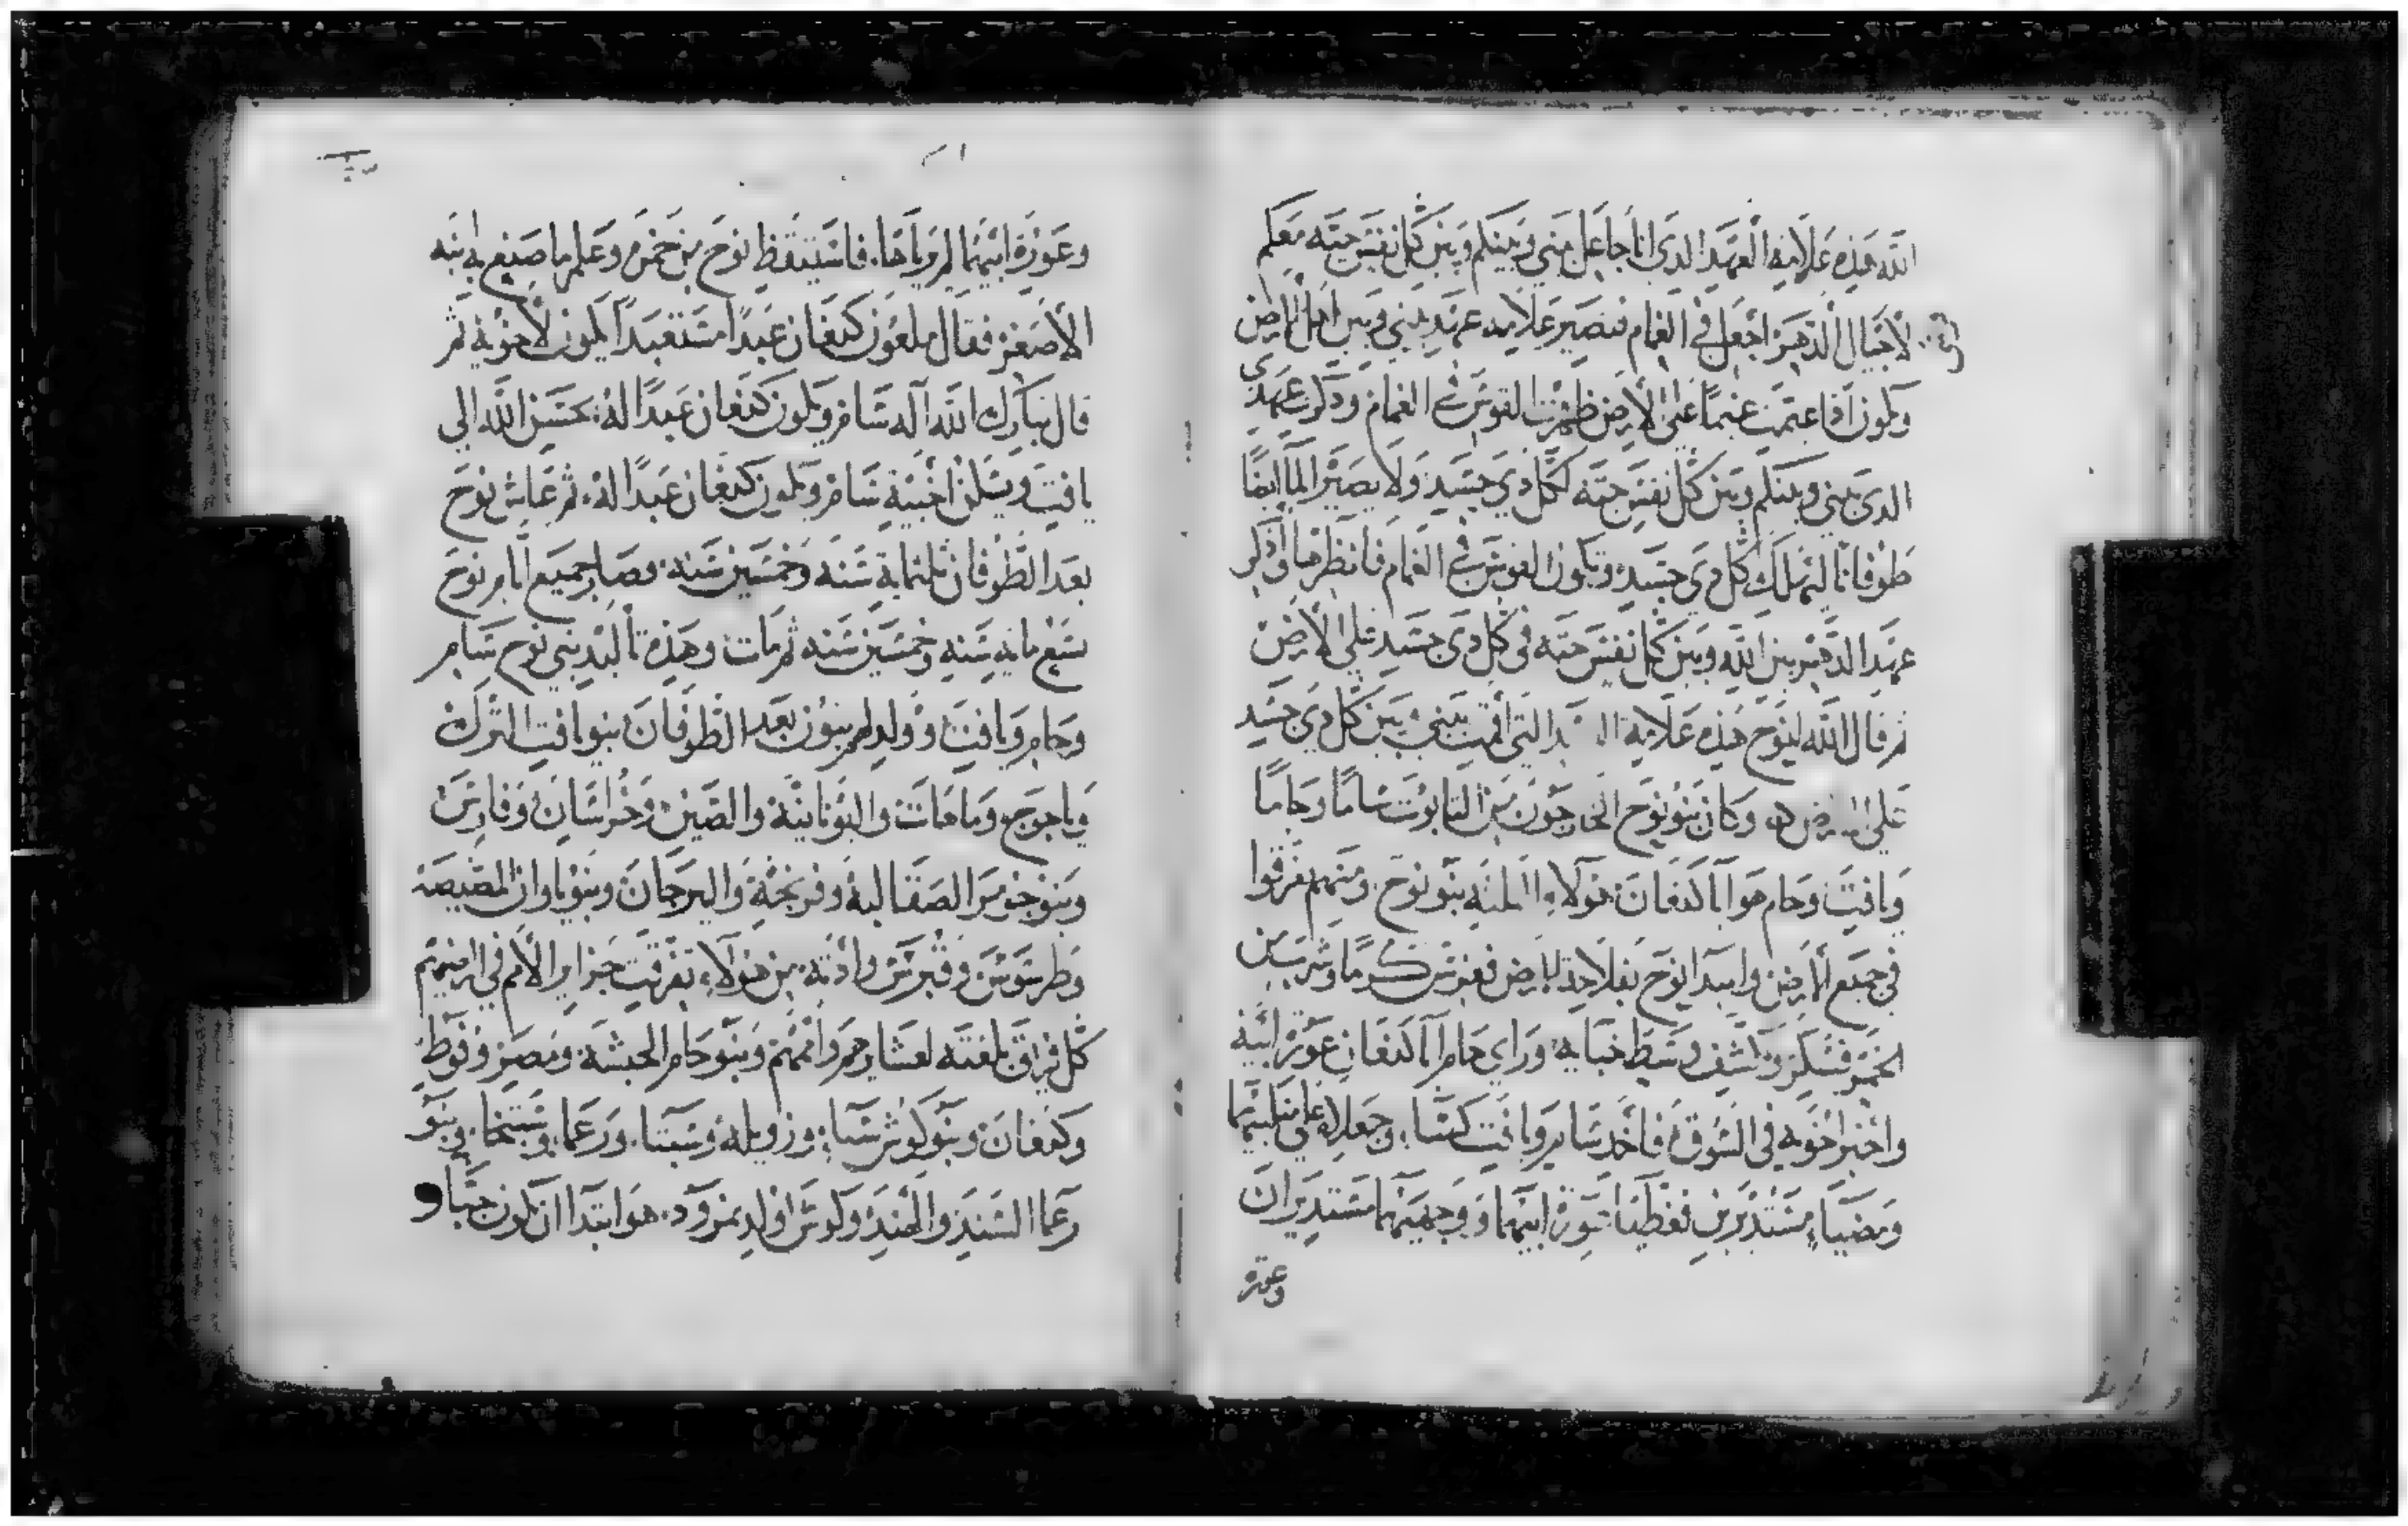 الله هذه علامة العهد الدي انا جاعل بيني وبينكم وبين كل نفس حيه معكم
لاجيال الدهر اجعل في الغمام فتصير علامه عهد بيني وبين اهل الارض
ويكون اذا غيمت غيما علي الارض ظهرت القوس في الغمام ودكرت عهدي
الدي بيني وبينكم وبين كل نفس حيه لكل دي جسد ولا يصير الما ايضا
طوفانا ليهلك كل دي جسد وتكون القوس في الغمام فانظرها واذكر
عهد الدهر بين الله وبين كل نفس حيه في كل دي جسد علي الارض
ثم قال الله لنوح هذه علامة التي اقمت بيني بين كل دي جسد
علي الارض وكان بنو نوح الخارجون من التابوت ساما وحاما
ويافت وحام هو ابا كنعان هولاء الثلثه بنو نوح ومنهم تفرقوا
في جميع الارض وابتدا نوح بفلاحة الارض فغرس كرما وشرب من
الخمر فسكر وتكشف وسط خبايه وراي حام ابا كنعان عورة ابيه
واخبر اخوته في السوق فاخد سام ويافت كسا وجعلاه علي منكبيهما
ومضيا مستدبرين فغطيا عورة ابيهما ووجهيهما مستديران
وعورة
وعورة ابيهما لم يرياها فاستيقظ نوح من خمره وعلم ما صنع به ابنه
الاصغر فقال ملعون كنعان عبدا مستعبدا يكون لاخوته ثم
قال تبارك الله اله سام ويكون كنعان عبدا له يحسن الله الي
يافت ويسكن اخبية سام ويكون كنعان عبدا له ثم عاش نوح
بعد الطوفان ثلثماية سنه وخمسين سنه فصار جميع ايام نوح
تسع مايه سنه وخمسين سنه ثم مات وهذه تاليد بني نوح سام
وحام ويافت وولد لهم بنون بعد الطوفان بنو يافت الترك
وياجوج وماهات واليونانيه والصين وخراسان وفارس
وبنو جومر الصقالبه وفرنجة والبرجان وبنو ياوان المصيصه
وطرسوس وقبرس وادنه من هولاء تفرقت جزاير الامم في اراضيهم
كل فريق بلغته لعشايرهم وانممهم وبنو حام الحبشه ومصر وفوط
وكنعان وبنو كوش سبا وزويله وسبتا ورعما وسبتخا وبنو
رعما السند والهند وكوش اولد نمرود هو ابتدا ان يكون جبارا